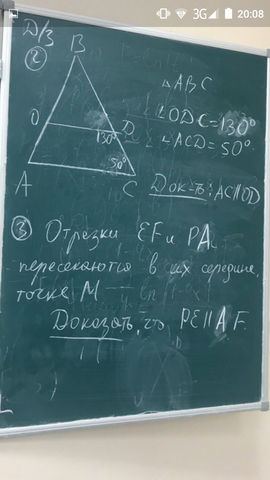 20:08
3G
Д/З
②
B
△ABC
O
D
∠ODC=130°
130°
∠ACD=50°
50°
A
C
Док-ть: AC∥OD
③ Отрезки EF и PA
пересекаются в их середине,
точке M
Доказать, что PE∥AF.